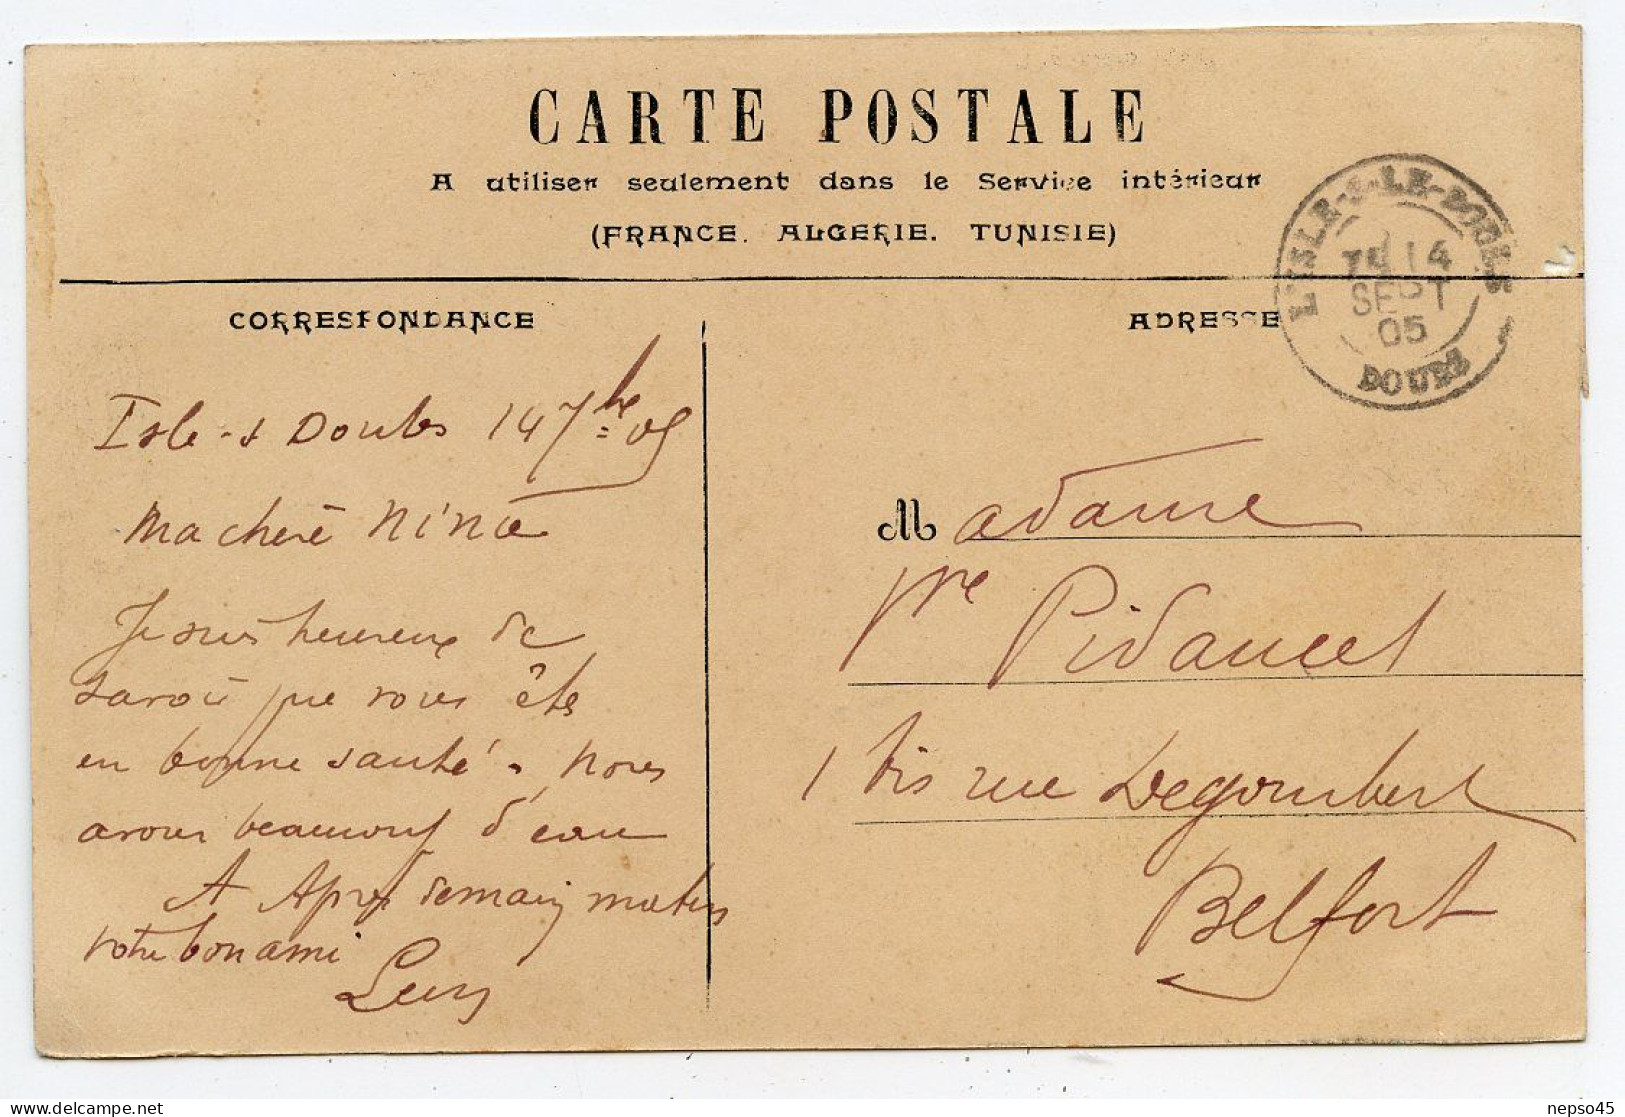 CARTE POSTALE
A utiliser seulement dans le Service intérieur
(FRANCE. ALGERIE. TUNISIE)
L'ISLE-S-LE-DOUBS
14
SEPT
05
DOUBS
CORRESPONDANCE
ADRESSE
Isle-s Doubs 14 7bre 05
Ma chère Nina
Je suis heureux de
savoir que vous êtes
en bonne santé. Nous
avons beaucoup d'eau
A Après demain matin
votre bon ami
Madame
Vve Pidancet
1 bis rue Degombert
Belfort
delcampe.net
nepso45